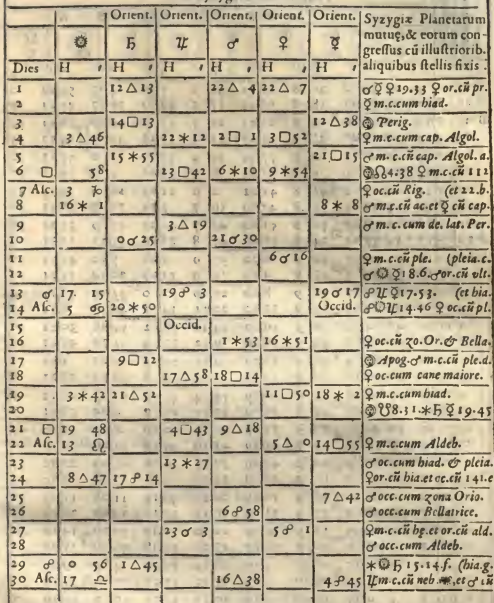 Orient. Orient. Orient. Orient. Orient. Syzygiæ Planetarum
☉ ♄ ♃ ♂ ♀ ☿ mutuę, & eorum con-
gressus cū illustriorib.
Dies H ' H ' H ' H ' H ' H ' aliquibus stellis fixis
1 12△13 22△ 4 22△ 7 ☌☿♀19.33 ♀or.cū pr.
2 ☿m.c.cum hiad.
3 14□13 12△38 Perig.
4 3△46 22*12 2□ 1 3□52 ♀m.c.cum cap. Algol.
5 15*55 21□15 ♂m.c.cū cap. Algol.a.
6 □ 58 23□42 6*10 9*54 ☊4.38 ♀m.c 112
7 Asc. 3 ♑ ♀oc.cū Rig. (et 22.b.
8 16* 1 8* 8 ♂m.c.cū ac.et ☿ cū cap.
9 3△19 ♂m.c.cum de.lat.Per.
10 0☌25 21☌30
11 6☌16 ♀m.c.cū ple. (pleia.c.
12 ♂☉☿18.6.♂or.cū vlt.
13 ☌ 17. 15 19☍ 3 19☌17 ☍♃☿17.53. (et hia.
14 Asc. 5 ♋ 20*50 Occid. ☍☉♃14.46 ♀oc.cū pl.
15 Occid.
16 1*53 16*51 ♀oc.cū zo.Or.& Bella.
17 9□12 Apog.♂m.c.cū ple.d.
18 17△58 18□14 ♀oc.cum cane maiore.
19 3*42 21△52 11□50 18* 2 ♀m.c.cum hiad.
20 ☋8.31.*♄☿19.45
21 □ 19 48 4□43 9△18
22 Asc. 13 ♌ 5△ 0 14□55 ♀m.c.cum Aldeb.
23 13*27 ♂oc.cum hiad. & pleia.
24 8△47 17☍14 ♀or.cū hia.et oc.cū 141.e
25 7△42 ♂occ.cum zona Orio.
26 6☍58 ♂occ.cum Bellatrice.
27 23☌ 3 5☍ 1 ♀m.c.cū hę.et or.cū ald.
28 ♂occ.cum Aldeb.
29 ☍ 0 56 1△45 *☉♄15.14.f. (hia.g.
30 Asc. 17 ♎ 16△38 4☍45 ♃m.c.cū neb et ♂ cū